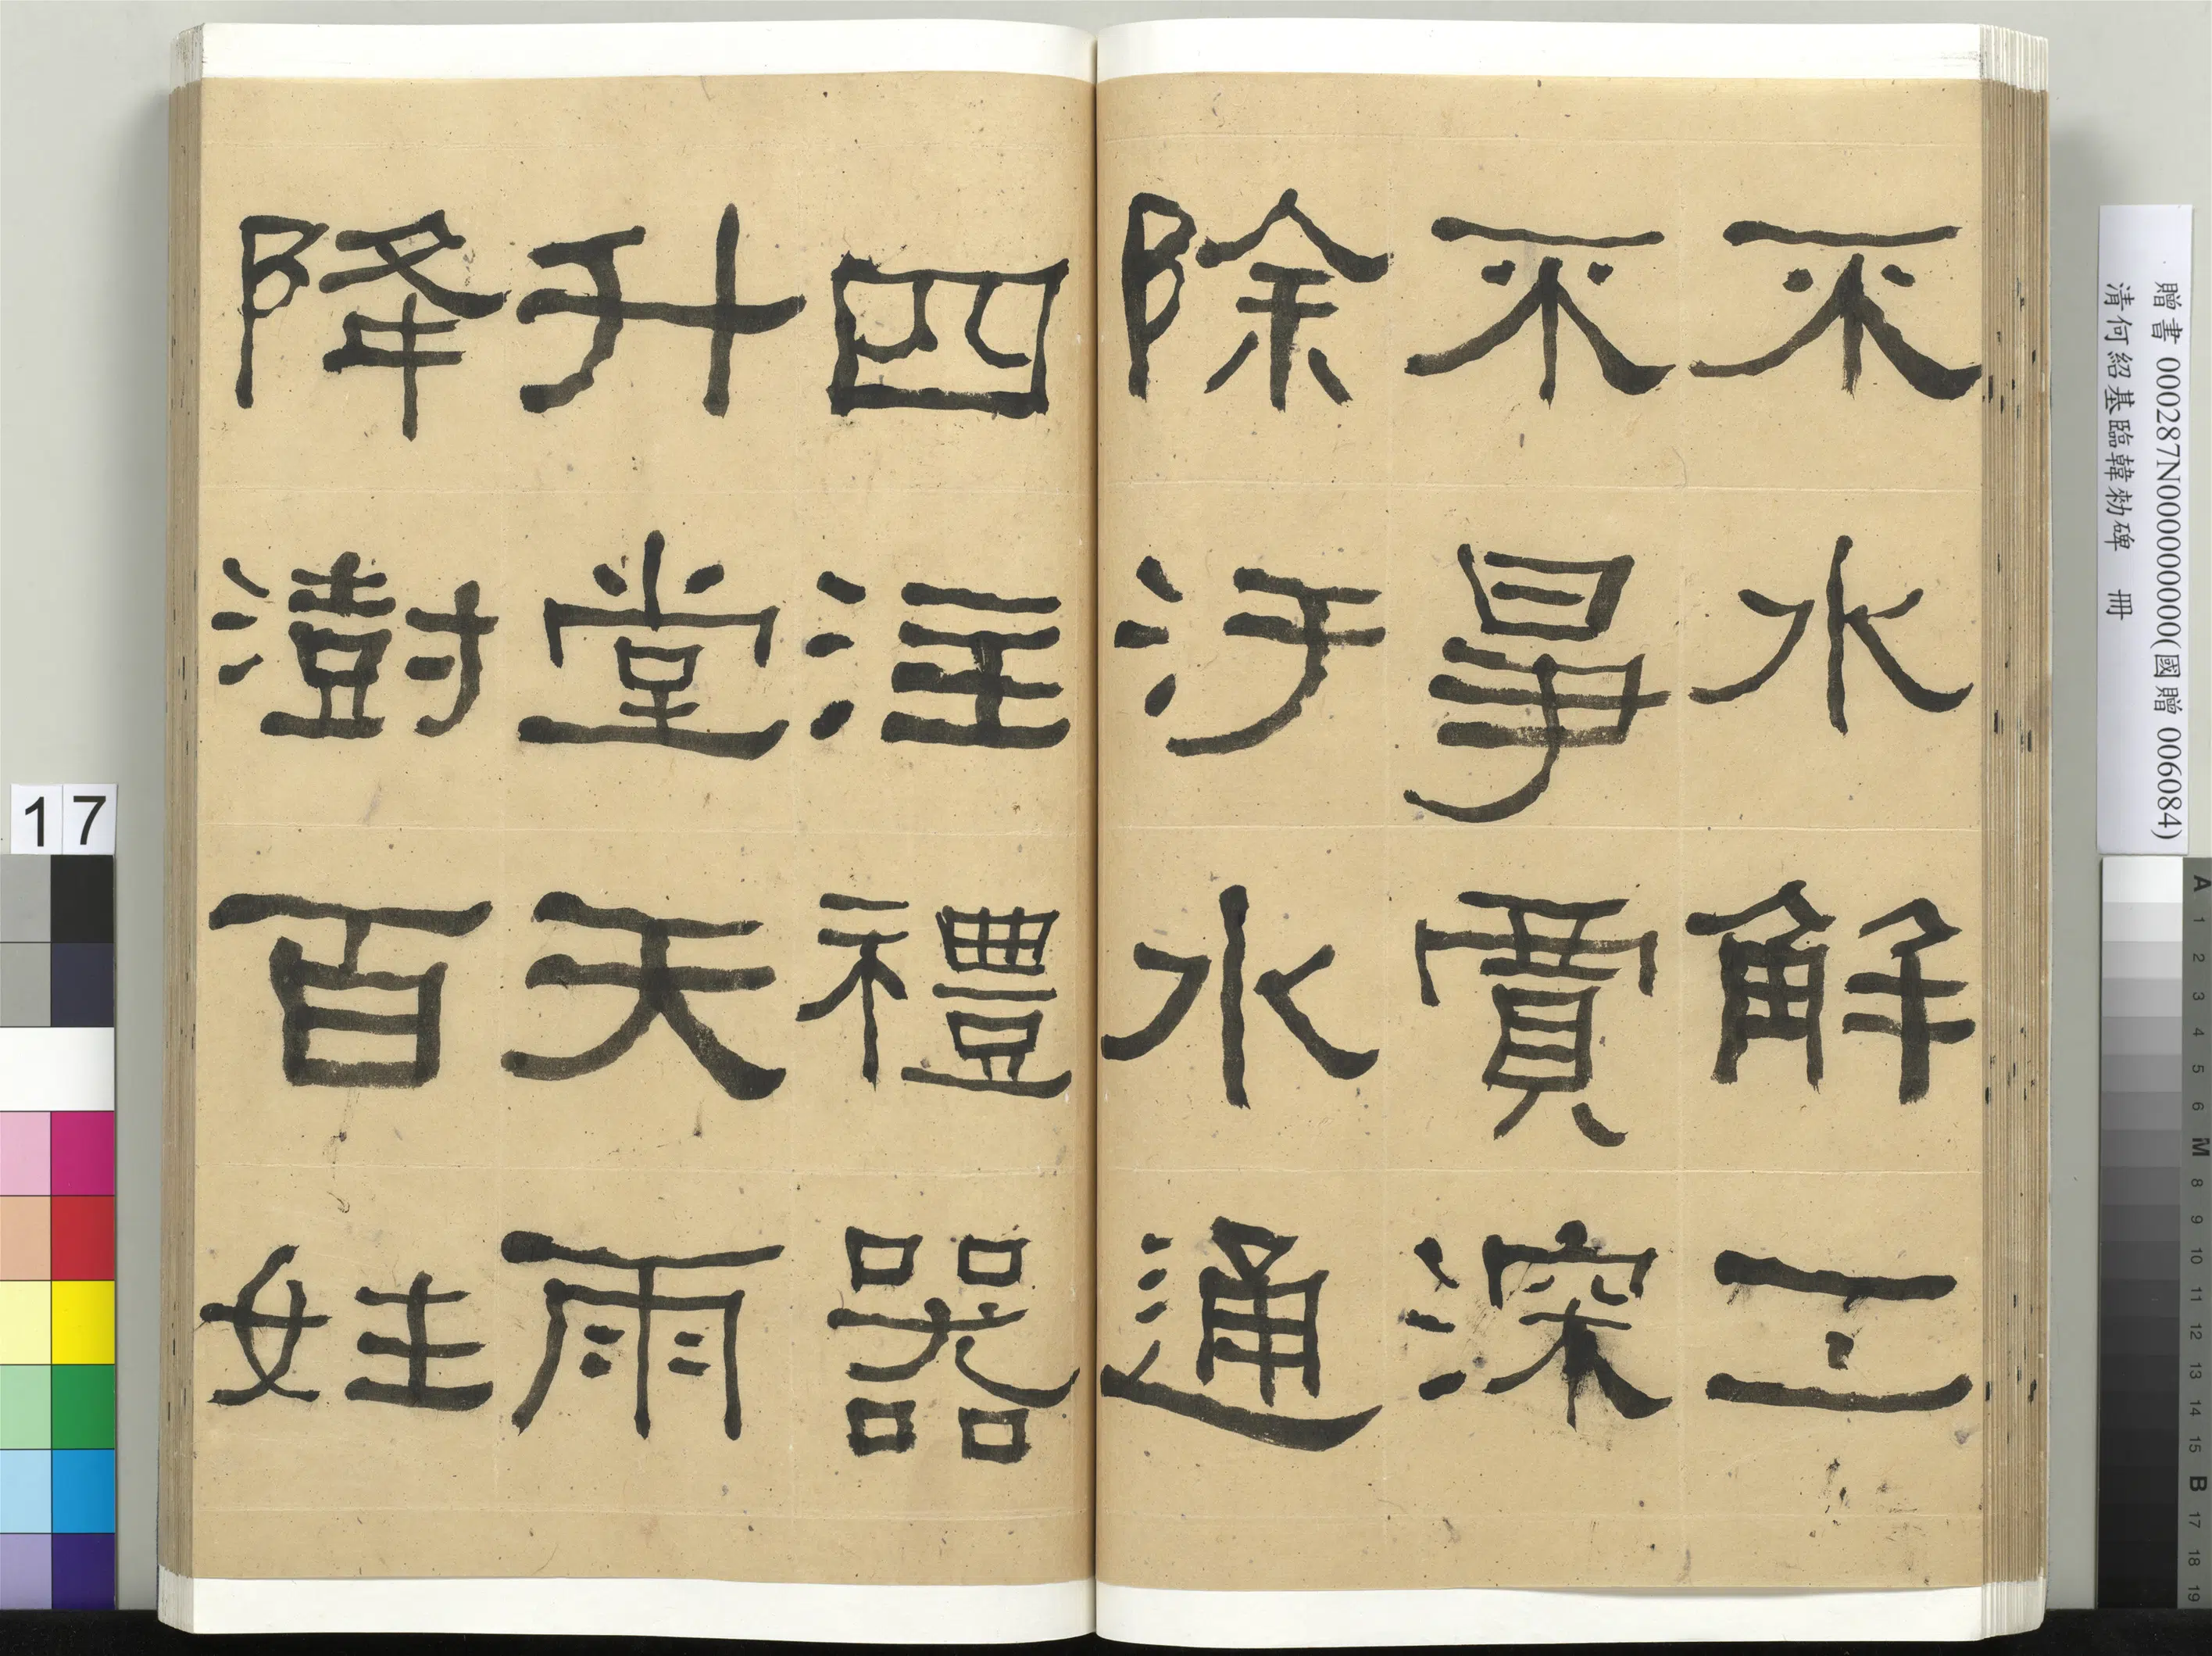 不水解工
不爭賈深
除汙水通
四注禮器
升堂天雨
降澍百姓
贈書 000287N000000000(國贈 006084)
清何紹基臨韓勑碑　冊
17
A 1 2 3 4 5 6 M 8 9 10 11 12 13 14 15 B 17 18 19